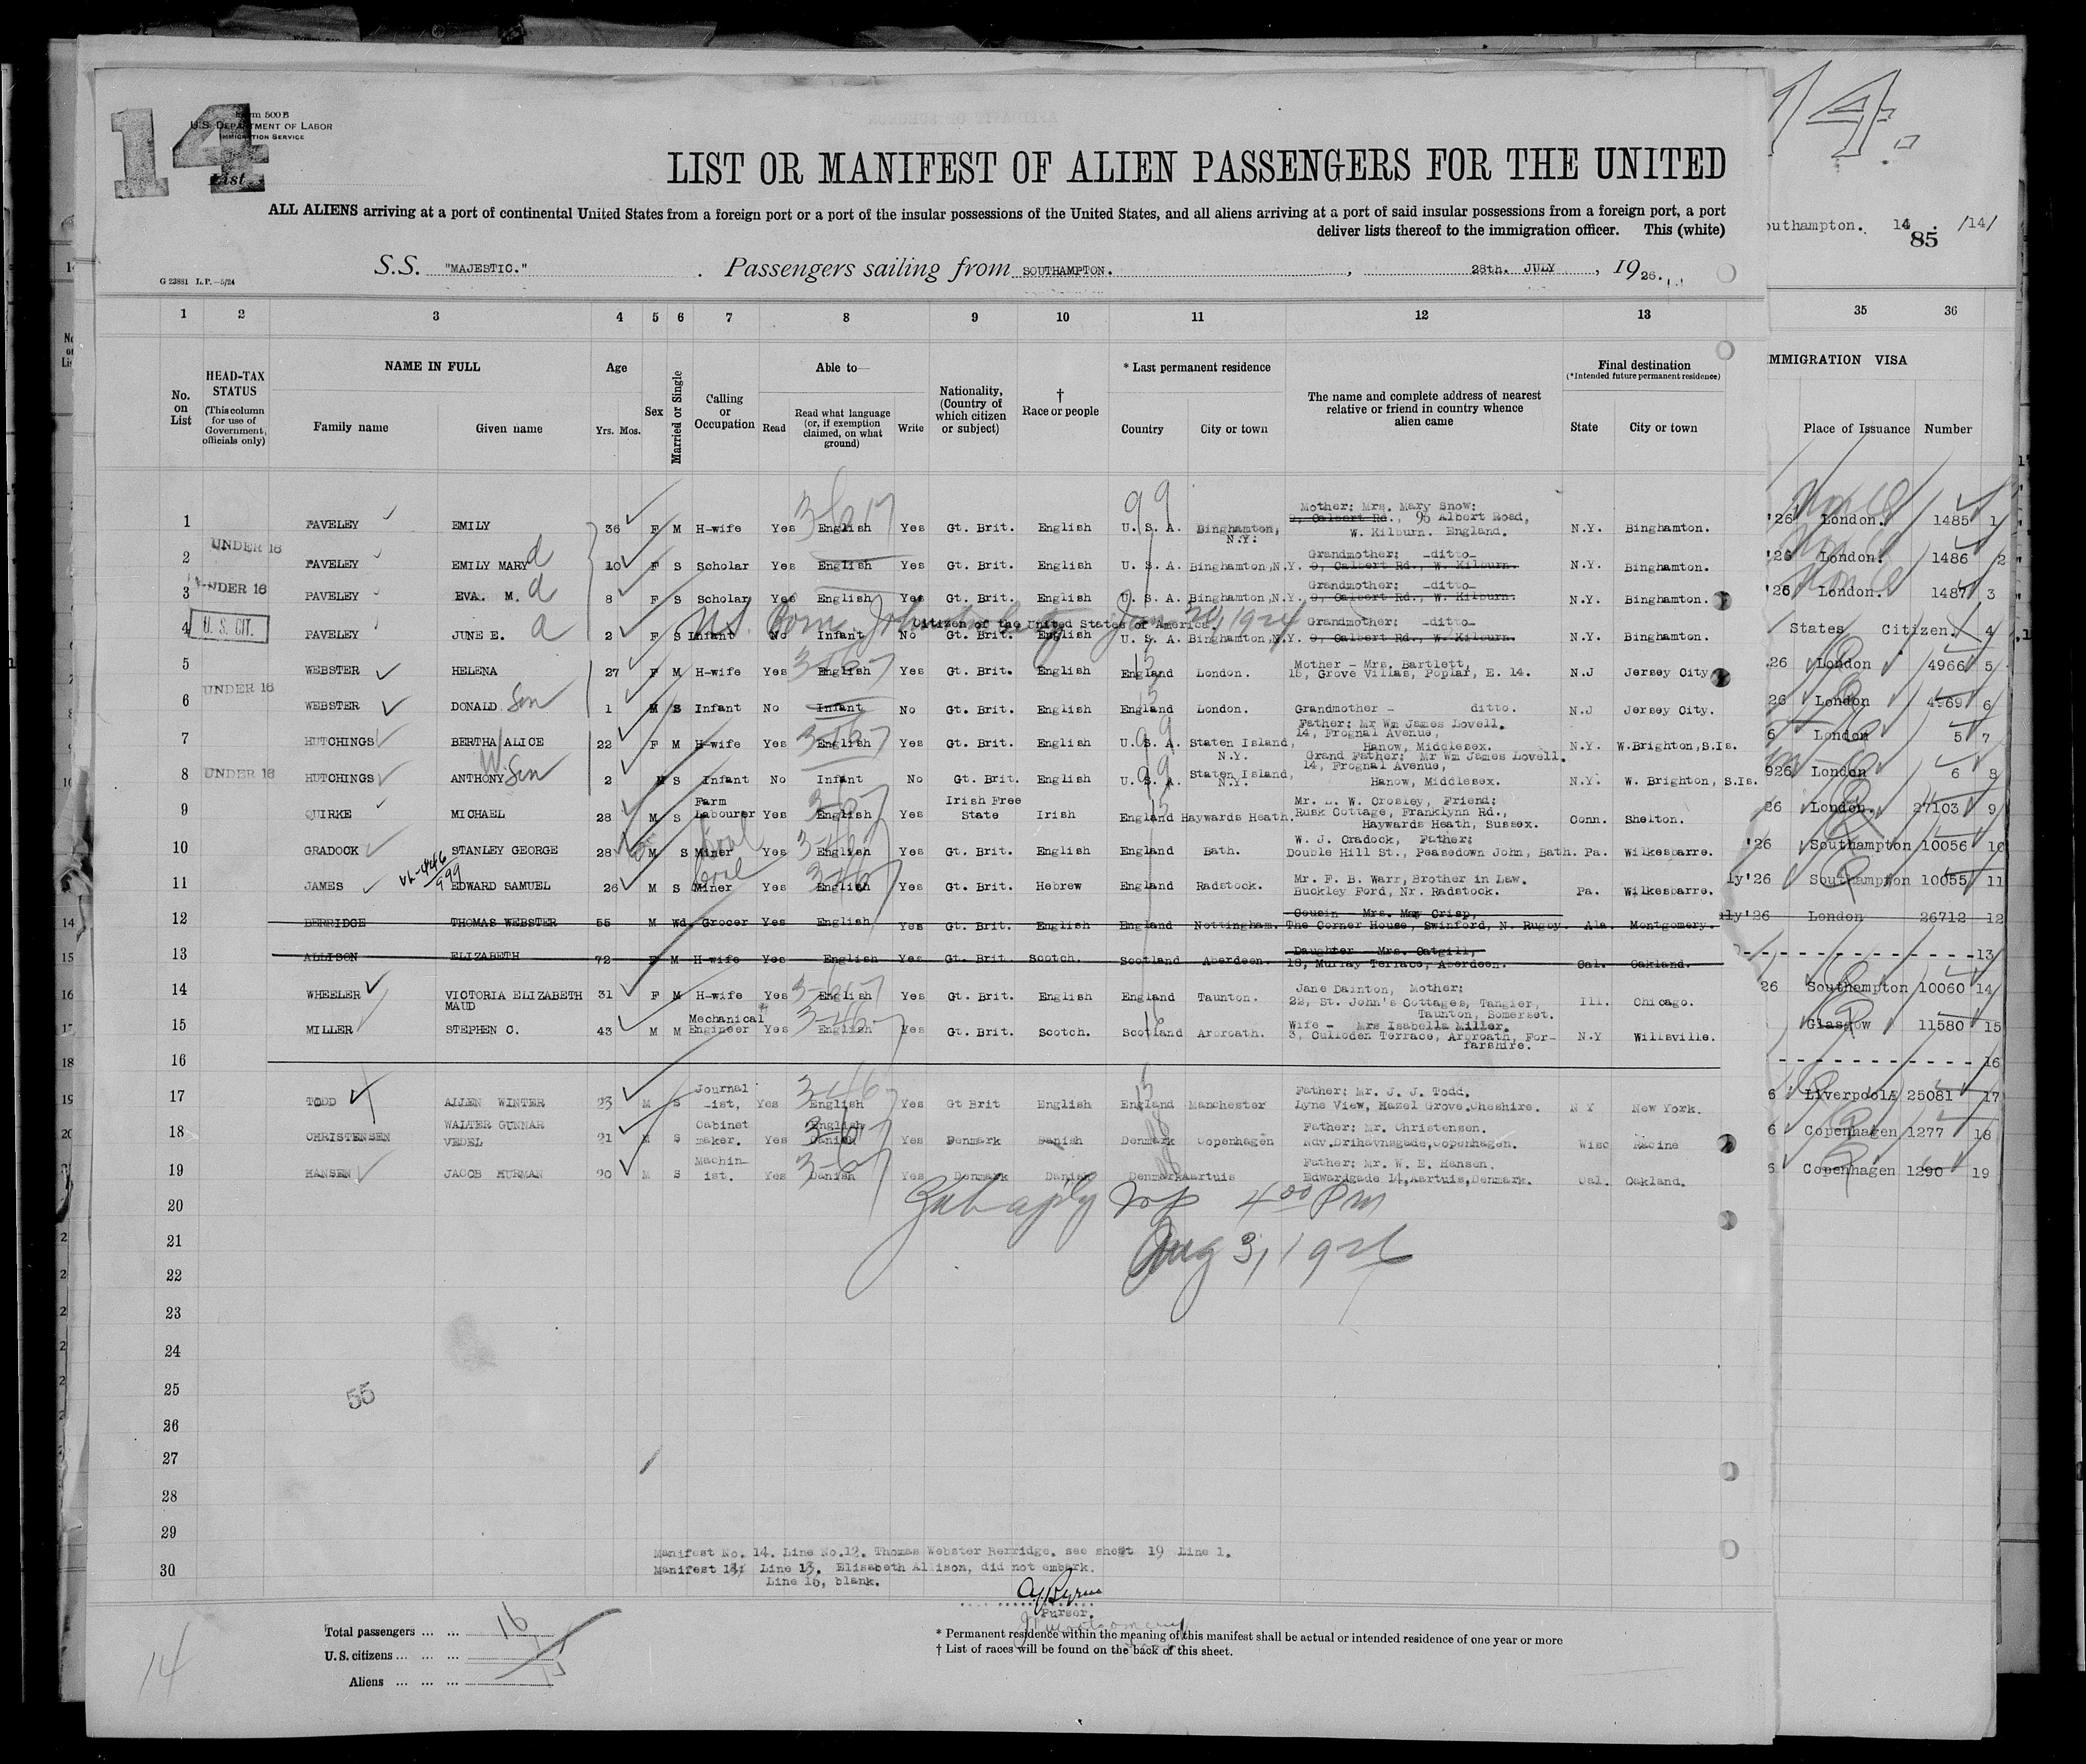 14
Form 500 B
U.S. DEPARTMENT OF LABOR
IMMIGRATION SERVICE
List
LIST OR MANIFEST OF ALIEN PASSENGERS FOR THE UNITED
ALL ALIENS arriving at a port of continental United States from a foreign port or a port of the insular possessions of the United States, and all aliens arriving at a port of said insular possessions from a foreign port, a port
deliver lists thereof to the immigration officer. This (white)
14
outhampton. 14 85 /14/
S.S. "MAJESTIC." . Passengers sailing from SOUTHAMPTON. , 28th. JULY , 1926.
G 23881 L.P.—5/24
1 2 3 4 5 6 7 8 9 10 11 12 13 35 36
No. on List
HEAD-TAX STATUS (This column for use of Government officials only)
NAME IN FULL
Family name Given name
Age
Yrs. Mos.
Sex
Married or Single
Calling or Occupation
Able to—
Read
Read what language (or, if exemption claimed, on what ground)
Write
Nationality, (Country of which citizen or subject)
† Race or people
* Last permanent residence
Country City or town
The name and complete address of nearest relative or friend in country whence alien came
Final destination
(*Intended future permanent residence)
State City or town
MMIGRATION VISA
Place of Issuance Number
1 PAVELEY EMILY 36 F M H-wife Yes English Yes Gt. Brit. English U. S. A. Binghamton, N.Y. Mother: Mrs. Mary Snow: 9, Calbert Rd., 96 Albert Road, W. Kilburn. England. N.Y. Binghamton. '26 London. 1485 1
2 UNDER 16 PAVELEY EMILY MARY d 10 F S Scholar Yes English Yes Gt. Brit. English U. S. A. Binghamton, N.Y. Grandmother: -ditto- 9, Calbert Rd., W. Kilburn. N.Y. Binghamton. '26 London. 1486 2
3 UNDER 16 PAVELEY EVA. M. d 8 F S Scholar Yes English Yes Gt. Brit. English U. S. A. Binghamton, N.Y. Grandmother: -ditto- 9, Calbert Rd., W. Kilburn. N.Y. Binghamton. '26 London. 1487 3
U.S. Born Jan 20, 1924
Citizen of the United States of America.
4 U. S. CIT. PAVELEY JUNE E. d 2 F S Infant No Infant No Gt. Brit. English U. S. A. Binghamton, N.Y. Grandmother: -ditto- 9, Calbert Rd., W. Kilburn. N.Y. Binghamton. States Citizen. 4
5 WEBSTER HELENA 27 F M H-wife Yes English Yes Gt. Brit. English England London. Mother - Mrs. Bartlett, 15, Grove Villas, Poplar, E. 14. N.J Jersey City 26 London 4966 5
6 UNDER 16 WEBSTER DONALD Son 1 M S Infant No Infant No Gt. Brit. English England London. Grandmother - ditto. N.J Jersey City. 26 London 4969 6
7 HUTCHINGS BERTHA ALICE 22 F M H-wife Yes English Yes Gt. Brit. English U.S. A. Staten Island, N.Y. Father: Mr Wm James Lovell. 14, Frognal Avenue, Hanow, Middlesex. N.Y. W.Brighton,S.Is. 6 London 5 7
8 UNDER 16 HUTCHINGS ANTHONY Son 2 M S Infant No Infant No Gt. Brit. English U. S. A. Staten Island, N.Y. Grand Father: Mr Wm James Lovell. 14, Frognal Avenue, Hanow, Middlesex. N.Y. W. Brighton, S.Is. 926 London 6 8
9 QUIRKE MICHAEL 28 M S Farm Labourer Yes English Yes Irish Free State Irish England Haywards Heath. Mr. L. W. Crosley, Friend: Rusk Cottage, Franklynn Rd., Haywards Heath, Sussex. Conn. Shelton. 26 London. 27103 9
10 GRADOCK STANLEY GEORGE 28 M S Coal Miner Yes English Yes Gt. Brit. English England Bath. W. J. Cradock, Father: Double Hill St., Peasedown John, Bath. Pa. Wilkesbarre. '26 Southampton 10056 10
11 JAMES EDWARD SAMUEL 26 M S Coal Miner Yes English Yes Gt. Brit. Hebrew England Radstock. Mr. F. B. Warr, Brother in Law. Buckley Ford, Nr. Radstock. Pa. Wilkesbarre. ly'26 Southampton 10055 11
12 BERRIDGE THOMAS WEBSTER 55 M Wd. Grocer Yes English Yes Gt. Brit. English England Nottingham. Cousin - Mrs. May Crisp, The Corner House, Swinford, N. Rugby. Ala. Montgomery. ly'26 London 26712 12
13 ALLISON ELIZABETH 72 F M H-wife Yes English Yes Gt. Brit. Scotch. Scotland Aberdeen. Daughter - Mrs. Catgill, 18, Murray Terrace, Aberdeen. Cal. Oakland. 13
14 WHEELER VICTORIA ELIZABETH MAUD 31 F M H-wife Yes English Yes Gt. Brit. English England Taunton. Jane Dainton, Mother: 22, St. John's Cottages, Tangier, Taunton, Somerset. Ill. Chicago. 26 Southampton 10060 14
15 MILLER STEPHEN C. 43 M M Mechanical Engineer Yes English Yes Gt. Brit. Scotch. Scotland Arbroath. Wife - Mrs Isabella Miller. 3, Culloden Terrace, Arbroath, Forfarshire. N.Y Willsville. Glasgow 11580 15
16 16
17 TODD ALLEN WINTER 23 M S Journal-ist. Yes English Yes Gt Brit English England Manchester Father: Mr. J. J. Todd. Lyne View, Hazel Grove.Cheshire. N Y New York. 6 Liverpool 25081 17
18 CHRISTENSEN WALTER GUNNAR VEDEL 21 M S Cabinet maker. Yes English Danish Yes Denmark Danish Denmark Copenhagen Father: Mr. Christensen. Ndv.Drihavnsgade,Copenhagen. Wisc Racine 6 Copenhagen 1277 18
19 HANSEN JACOB HURMAN 20 M S Machin-ist. Yes Danish Yes Denmark Danish Denmark Aartuis Father: Mr. W. E. Hansen. Edwardgade 14,Aartuis,Denmark. Cal. Oakland. 6 Copenhagen 1290 19
20
4 00 PM
21
Aug 3, 1926
22
23
24
25
55
26
27
28
29
Manifest No. 14. Line No.12. Thomas Webster Berridge. see sheet 19 Line 1.
30
Manifest 14; Line 13. Elisabeth Allison, did not embark.
Line 16, blank.
Purser.
Total passengers ... ... 16
U. S. citizens ... ... ... 1
Aliens ... ... ... 15
14
* Permanent residence within the meaning of this manifest shall be actual or intended residence of one year or more
† List of races will be found on the back of this sheet.